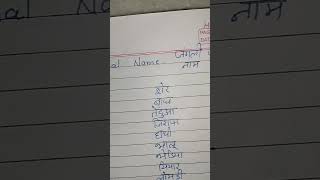 al Name जंगली
नाम
शेर
बाघ
तेंदुआ
जिराफ
हाथी
भालू
भेड़िया
सियार
लोमड़ी